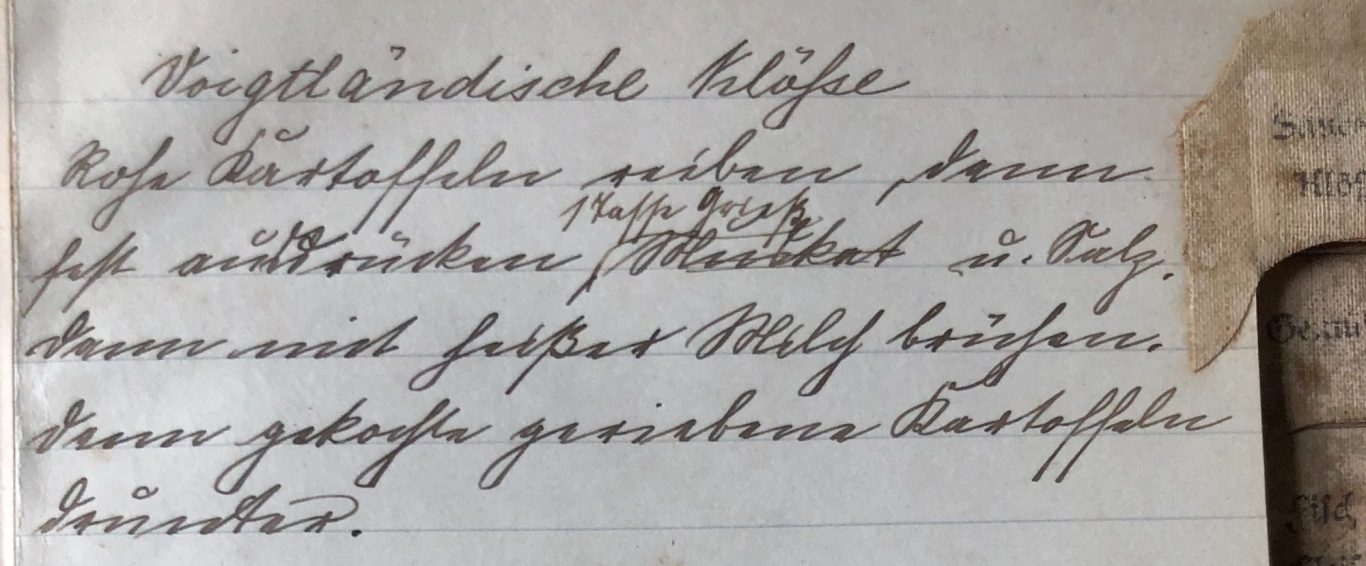 Voigtländische Klöße
Rohe Kartoffeln reiben, dann
1 Tasse Grieß
fest ausdrücken, Muskat u. Salz.
dann mit heißer Milch brühen.
dann gekochte geriebene Kartoffeln
drunter.